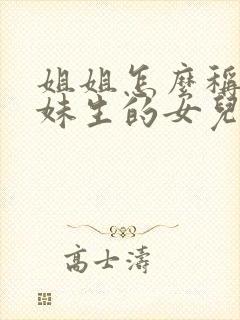 姐姐怎麼稱
妹生的女兒
高士濤